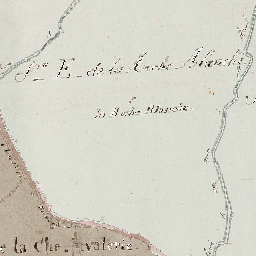 de la Roche Blanche
la Roche Blanche
e la Che valerie